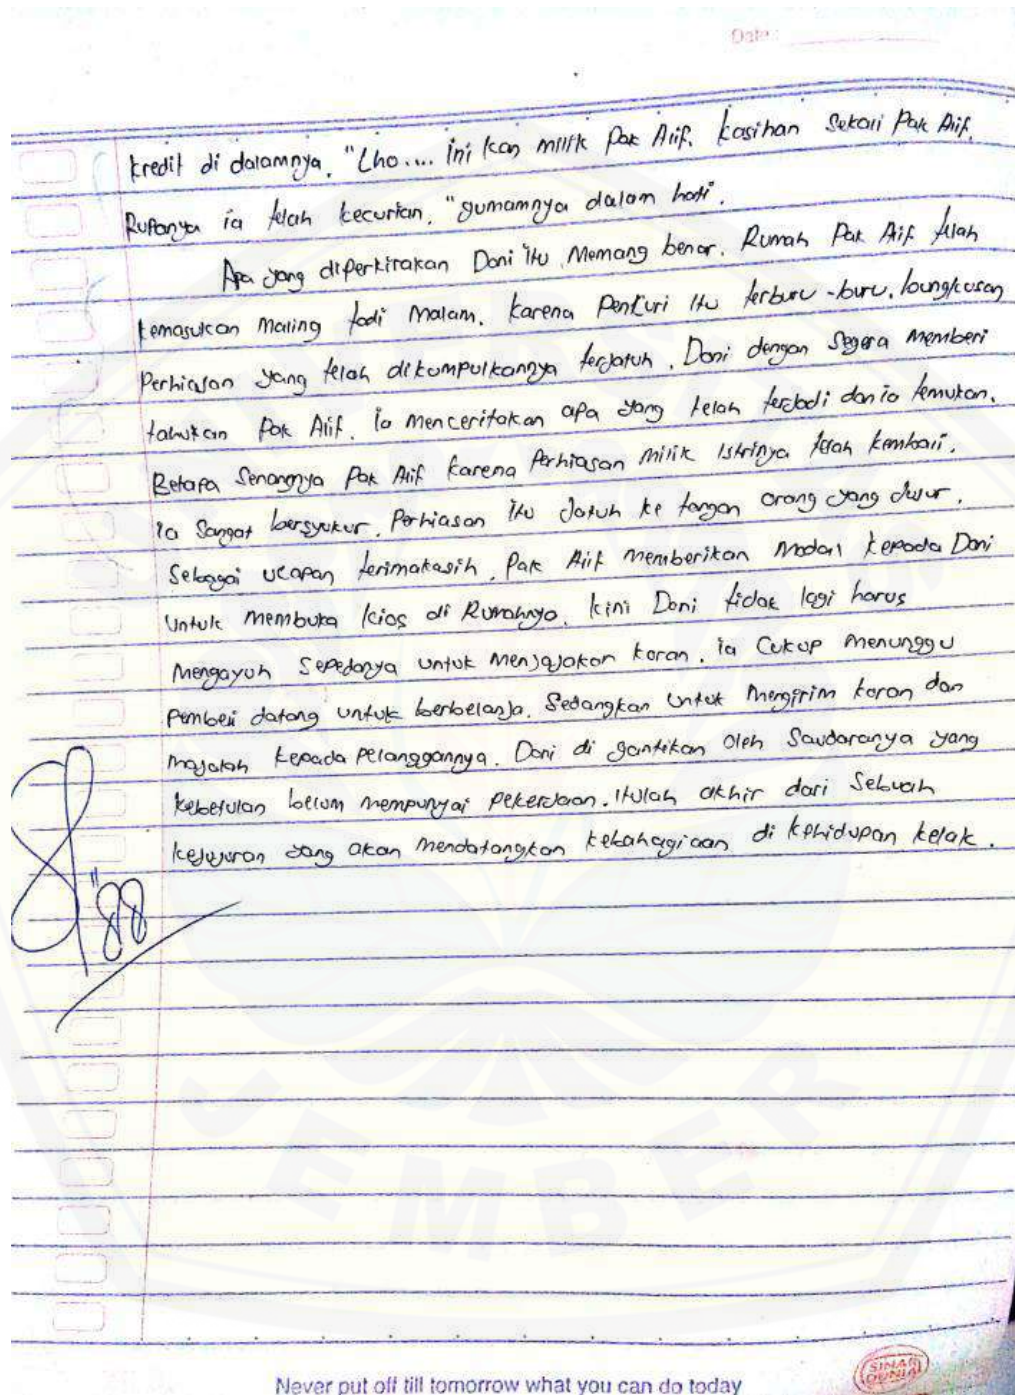 Date:
kredit di dalamnya. "Lho.... ini kan milik Pak Alif. kasihan Sekali Pak Alif.
Rupanya ia telah kecurian, "gumamnya dalam hati.
Apa yang diperkirakan Doni itu Memang benar. Rumah Pak Alif telah
kemasukan Maling tadi Malam. karena Pencuri itu terburu-buru, bungkusan
Perhiasan yang telah dikumpulkannya terjatuh. Doni dengan Segera Memberi
tahukan Pak Alif. ia menceritakan apa yang telah terjadi dan ia temukan.
Betapa Senangnya Pak Alif karena Perhiasan milik Istrinya telah kembali.
ia Sangat bersyukur. Perhiasan itu Jatuh ke tangan orang yang jujur.
Sebagai ucapan terimakasih, Pak Alif memberikan Modal kepada Doni
Untuk membuka kios di Rumahnya. kini Doni tidak lagi harus
Mengayuh Sepedanya untuk Menjajakan koran. ia Cukup Menunggu
Pembeli datang untuk berbelanja. Sedangkan untuk Mengirim koran dan
majalah kepada Pelanggannya. Doni di gantikan Oleh Saudaranya yang
kebetulan belum mempunyai Pekerjaan. Itulah akhir dari Sebuah
kejujuran yang akan mendatangkan kebahagiaan di kehidupan kelak.
88
JEMBER
SINAR
DUNIA
Never put off till tomorrow what you can do today